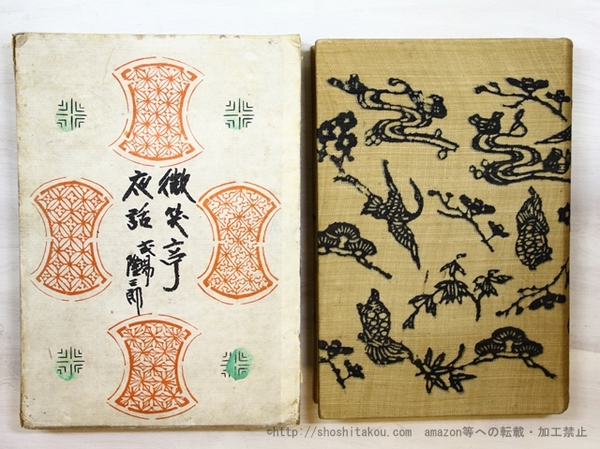 微笑亭
夜話
玄陽隆三郎
©http://shoshitakou.com amazon等への転載・加工禁止